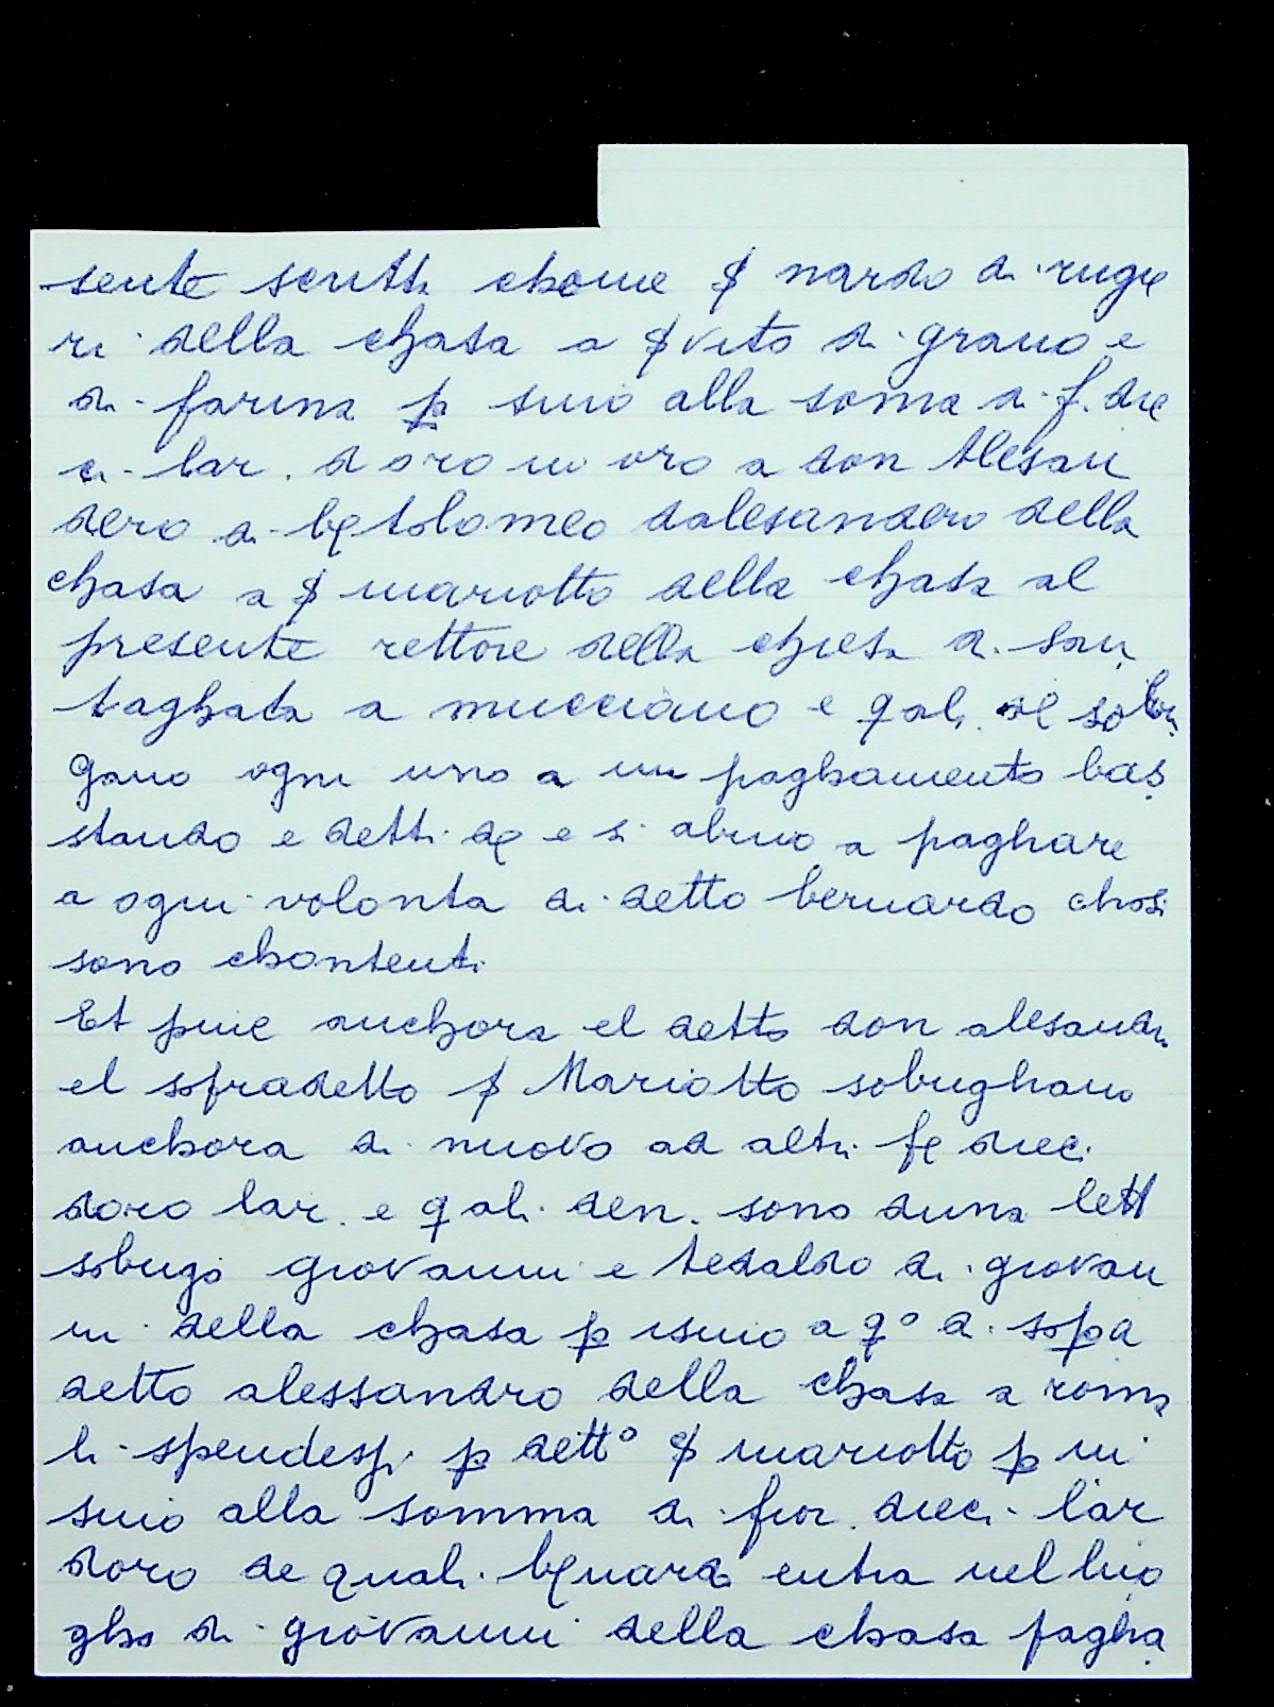 sente scritti chome § nardo di rugie
ri della chasa a § vito di grano e
di farina p insino alla soma di f. die
ci lar. d oro in oro a don Alesan
dero di bertolomeo dalesandero della
chasa a § mariotto della chasa al
presente rettore della chiesa di san
taghata a mucciano e q ali se sobri
gano ogni uno a un paghamento bas
stando e detti de e si abino a paghare
a ogni volonta di detto bernardo chosi
sono chontenti
Et piue anchora el detto don alesandr.
el sopradetto § Mariotto sobrighano
anchora di nuovo ad altri f dieci
doro lar. e q ali den. sono duna lett
sobrigo giovanni e tedaldo di giovan
ni della chasa p insino a q° di sopa
detto alessandro della chasa a roma
li spendessi p dett° § mariotto p in
sino alla somma di fior. dieci lar
doro de quali bernardo entra nel luo
gho di giovanni della chasa pagha